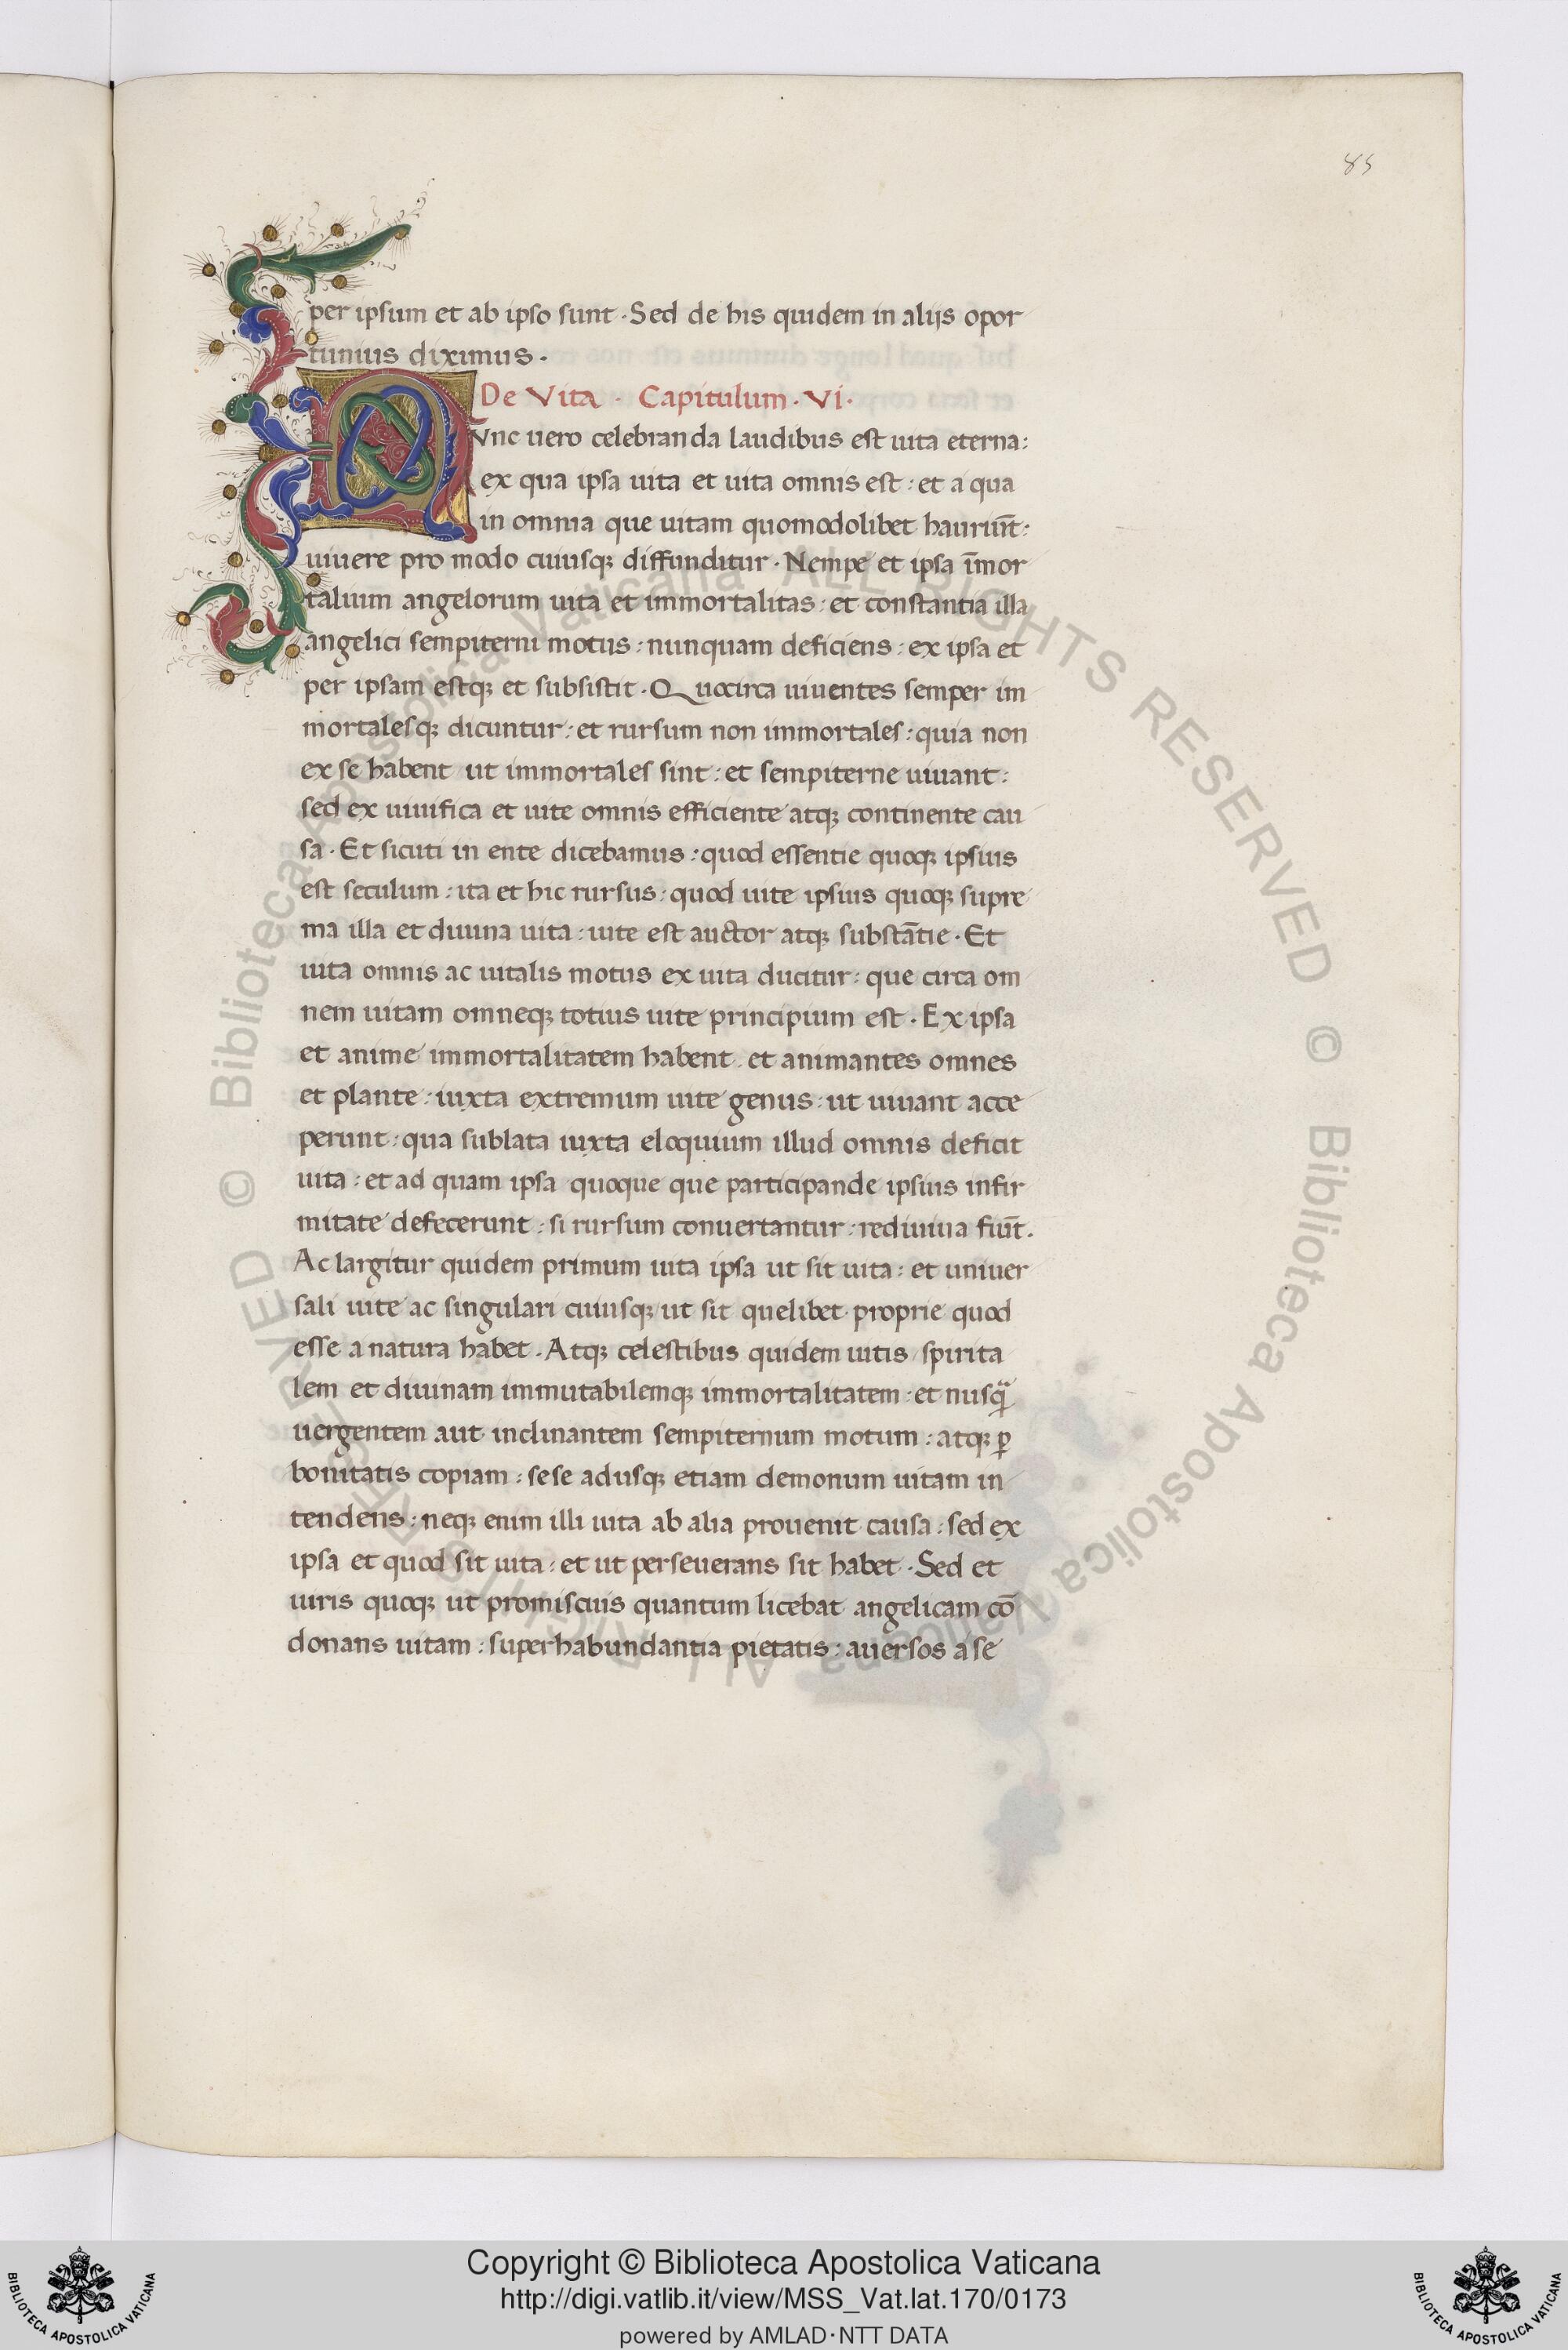 85
per ipsum et ab ipso sunt · Sed de his quidem in alijs opor
tunius diximus ·
De Vita · Capitulum · VI ·
NVnc uero celebranda laudibus est uita eterna :
ex qua ipsa uita et uita omnis est : et a qua
in omnia que uitam quomodolibet hauriūt :
uiuere pro modo cuiusq; diffunditur · Nempe et ipsa īmor
talium angelorum uita et immortalitas : et constantia illa
angelici sempiterni motus : nunquam deficiens : ex ipsa et
per ipsam estq; et subsistit · Quocirca uiuentes semper im
mortalesq; dicuntur : et rursum non immortales : quia non
ex se habent ut immortales sint : et sempiterne uiuant :
sed ex uiuifica et uite omnis efficiente atq; continente cau
sa · Et sicuti in ente dicebamus : quod essentie quoq; ipsius
est seculum : ita et hic rursus : quod uite ipsius quoq; supre
ma illa et diuina uita : uite est auctor atq; substātie · Et
uita omnis ac uitalis motus ex uita ducitur : que circa om
nem uitam omneq; totius uite principium est · Ex ipsa
et anime immortalitatem habent · et animantes omnes
et plante : iuxta extremum uite genus : ut uiuant acce
perunt : qua sublata iuxta eloquium illud omnis deficit
uita : et ad quam ipsa quoque que participande ipsius infir
mitate defecerunt : si rursum conuertantur : rediuiua fiūt .
Ac largitur quidem primum uita ipsa ut sit uita : et uniuer
sali uite ac singulari cuiusq; ut sit quelibet proprie quod
esse a natura habet · Atq; celestibus quidem uitis spirita
lem et diuinam immutabilemq; immortalitatem : et nusq̄
uergentem aut inclinantem sempiternum motum : atq; ꝑ
bonitatis copiam : sese adusq; etiam demonum uitam in
tendens : neq; enim illi uita ab alia prouenit causa : sed ex
ipsa et quod sit uita : et ut perseuerans sit habet · Sed et
uiris quoq; ut promiscuis quantum licebat angelicam cō
donans uitam : superhabundantia pietatis : auersos a se
© Biblioteca Apostolica Vaticana ALL RIGHTS RESERVED © Biblioteca Apostolica Vaticana ALL RIGHTS RESERVED
Copyright © Biblioteca Apostolica Vaticana
http://digi.vatlib.it/view/MSS_Vat.lat.170/0173
powered by AMLAD·NTT DATA
BIBLIOTECA APOSTOLICA VATICANA
BIBLIOTECA APOSTOLICA VATICANA